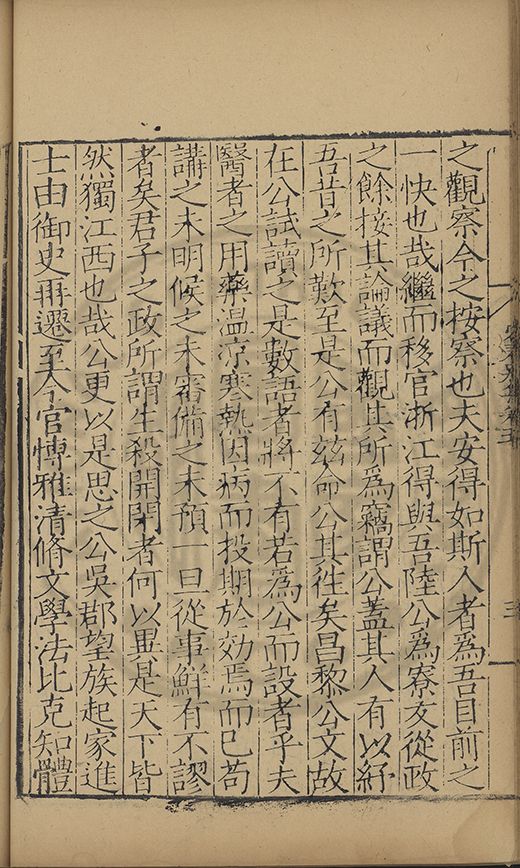 之觀察今之按察也夫安得如斯人者為吾目前之
一快也哉繼而移官浙江得與吾陸公為寮友從政
之餘接其論議而觀其所為竊謂公蓋其人有以紓
吾昔之所歎至是公有茲命公其徃矣昌黎公文故
在公試讀之是數語者將不有若為公而設者乎夫
醫者之用藥温凉寒熱因病而投期於効焉而已苟
講之未明候之未審備之未預一旦從事鮮有不謬
者矣君子之政所謂生殺開閉者何以異是天下皆
然獨江西也哉公更以是思之公吳郡望族起家進
士由御史冉遷至今官愽雅清脩文學法比克知體